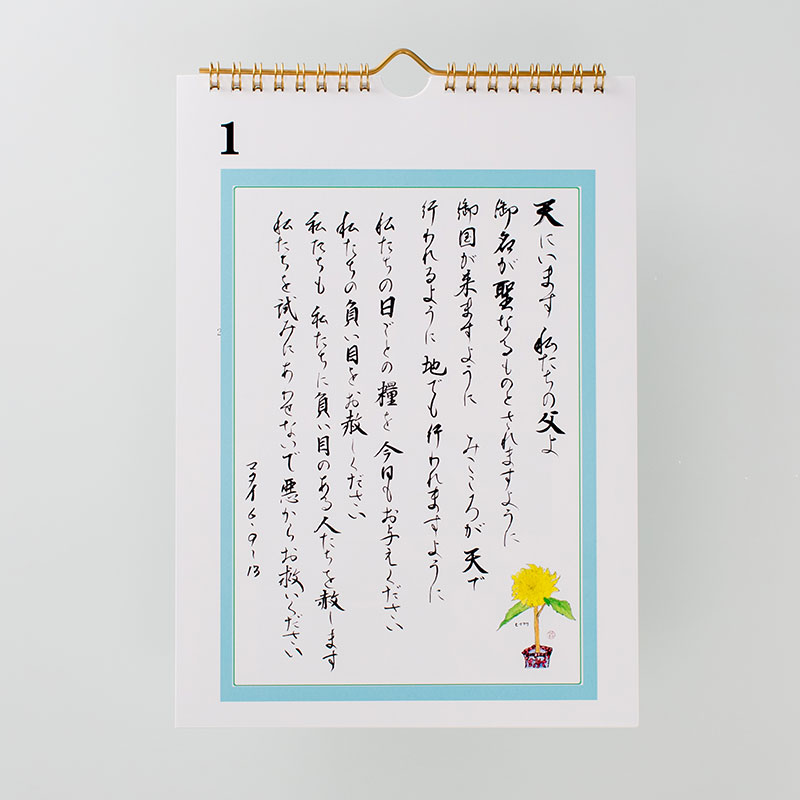 1
天にいます 私たちの父よ
御名が聖なるものとされますように
御国が来ますように みこころが天で
行われるように 地でも行われますように
私たちの日ごとの糧を 今日もお与えください
私たちの負い目をお赦しください
私たちも 私たちに負い目のある人たちを赦します
私たちを試みにあわせないで 悪からお救いください
マタイ6・9-13